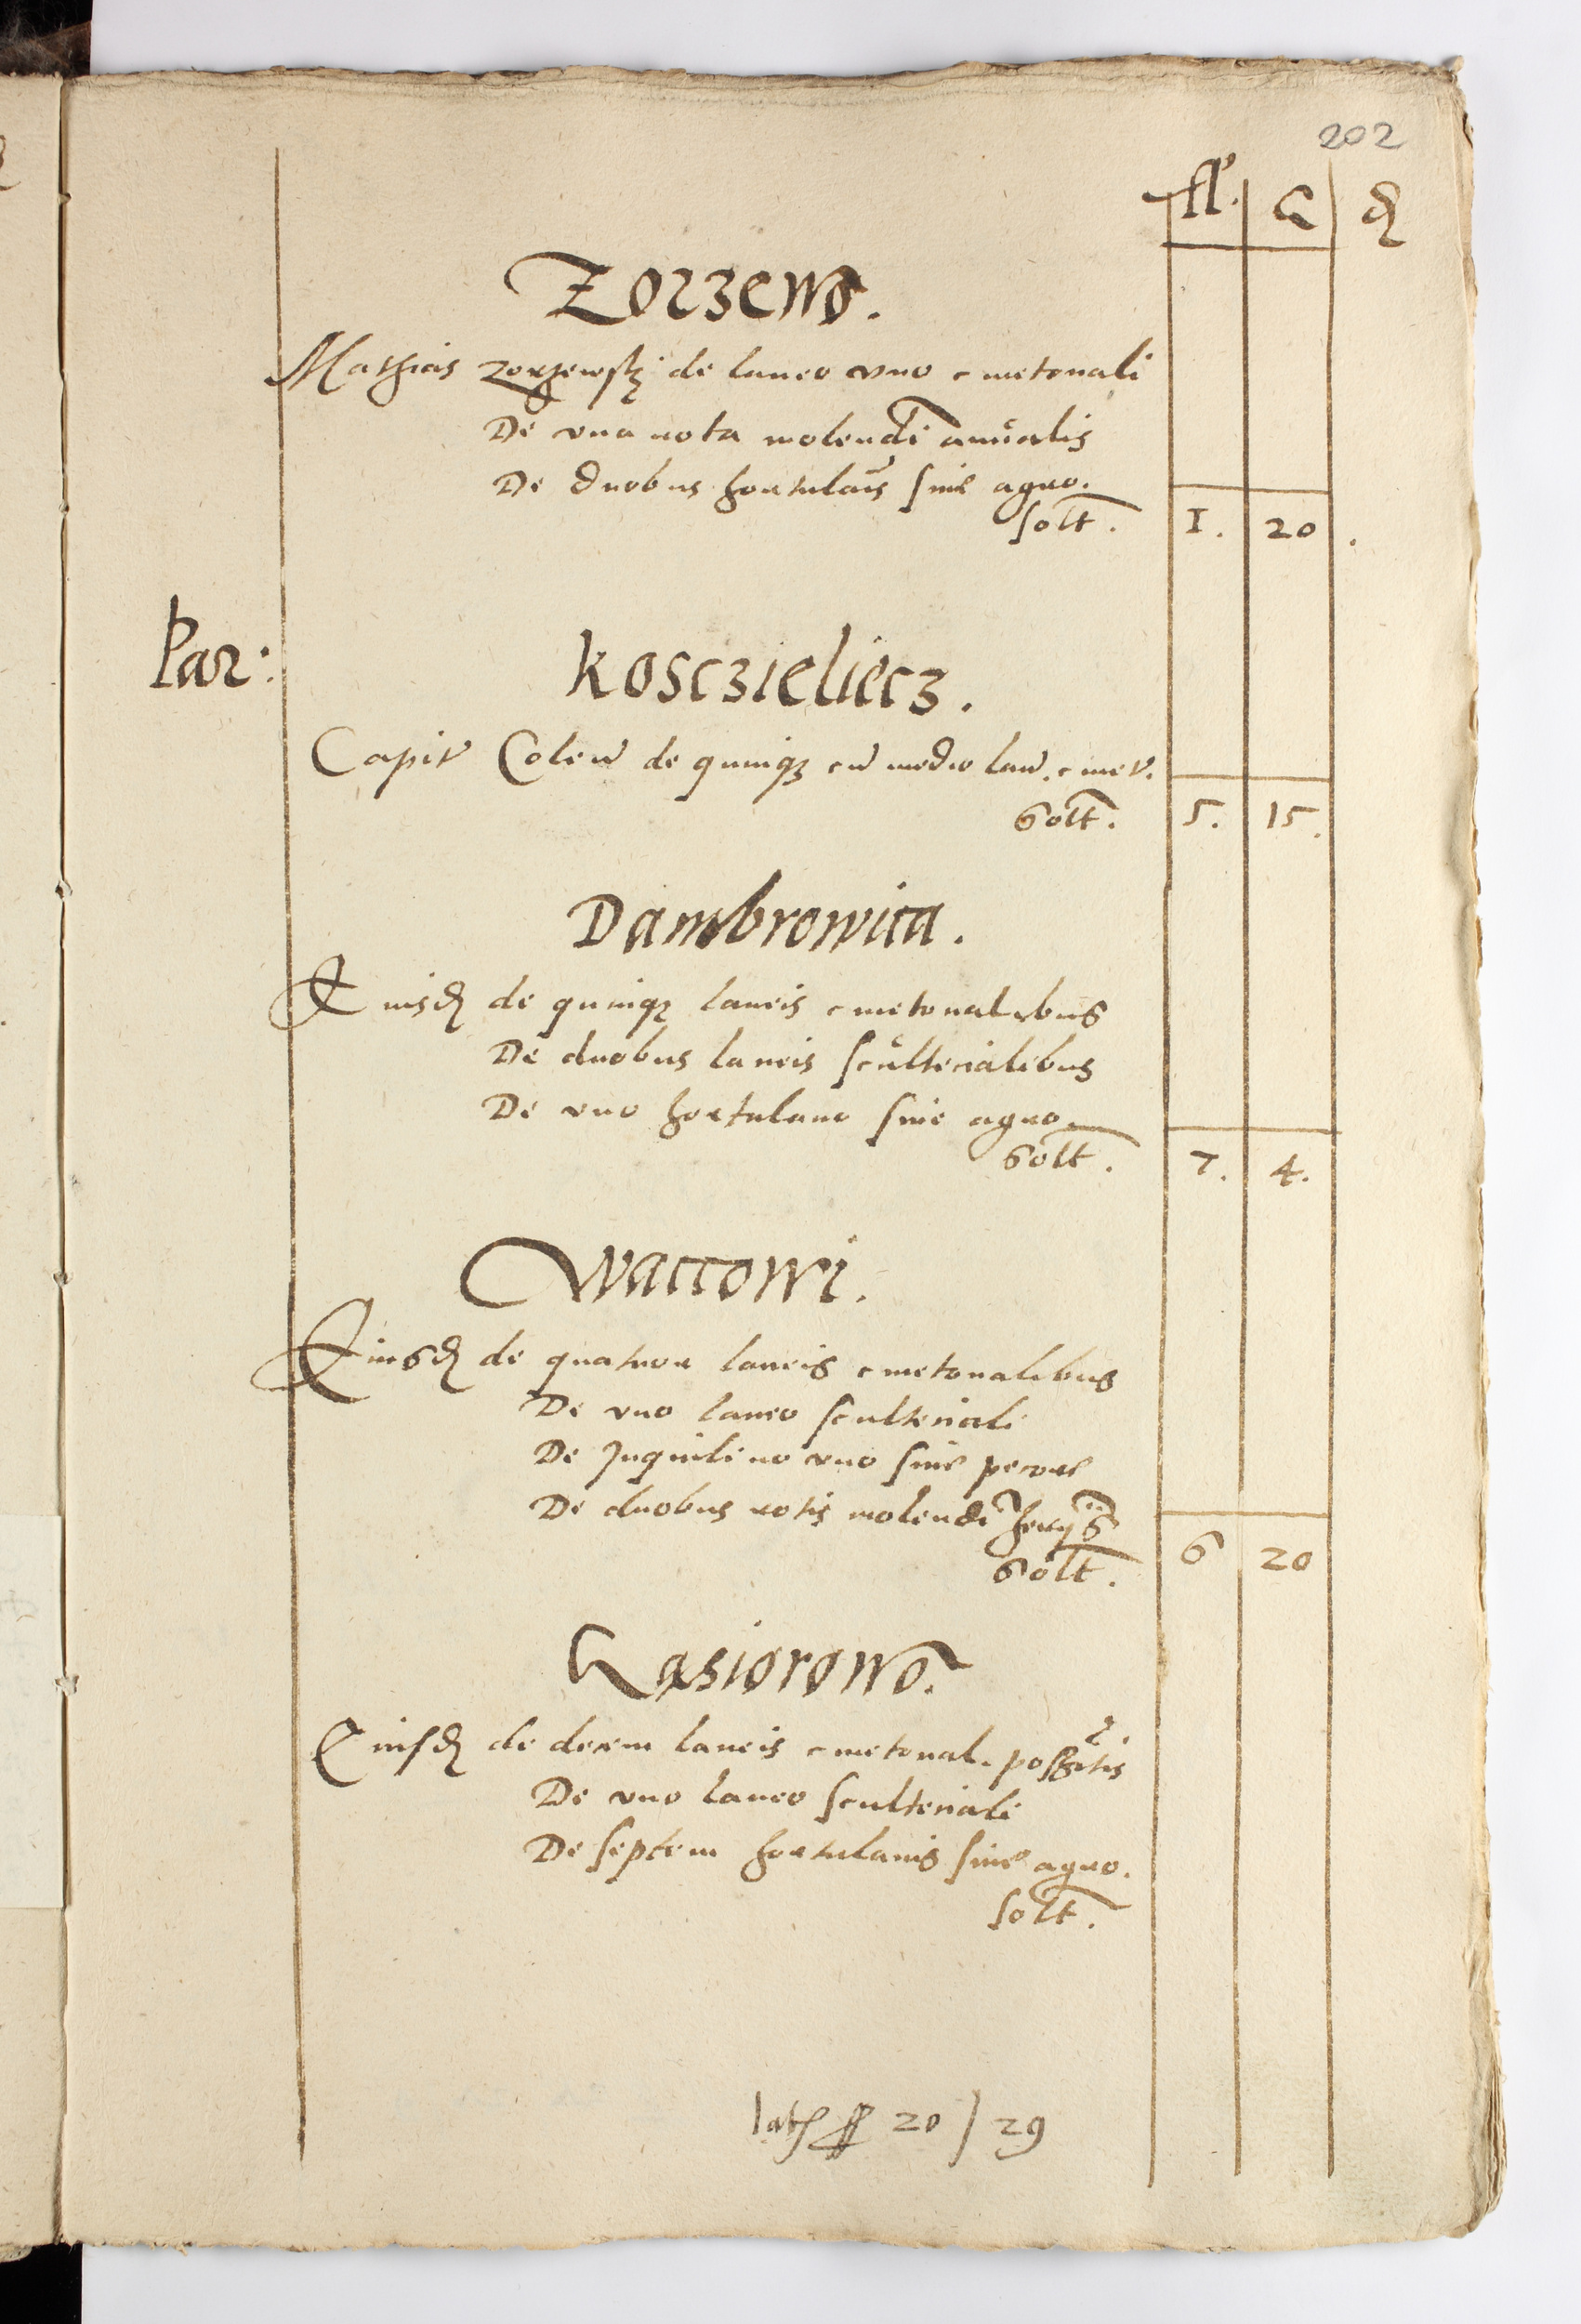 202
fl. G ₰
Zorzewo.
Mathias Zorzewsky de laneo vno cmetonali
De vna rota molendī annualis
De duobus hortulanis sine agro.
solt. 1. 20.
Par: Kosczieliecz.
Capit Colen de quinqz cu medio lan. cmet.
Solt. 5. 15.
Dambrowica.
Eiusd de quinqz laneis cmetonalibus
De duobus laneis scultecialibus
De vno hortulano sine agro.
Solt. 7. 4.
Waccowi.
Eiusd de quatuor laneis cmetonalibus
De vno laneo sculteciali
De Inquilino vno sine pecore
De duobus rotis molendi
Solt. 6 20
Gasiorowo.
Eiusd de decem laneis cmetonal.
De vno laneo sculteciali
De septem hortulanis sine agro.
solt.
20 / 29